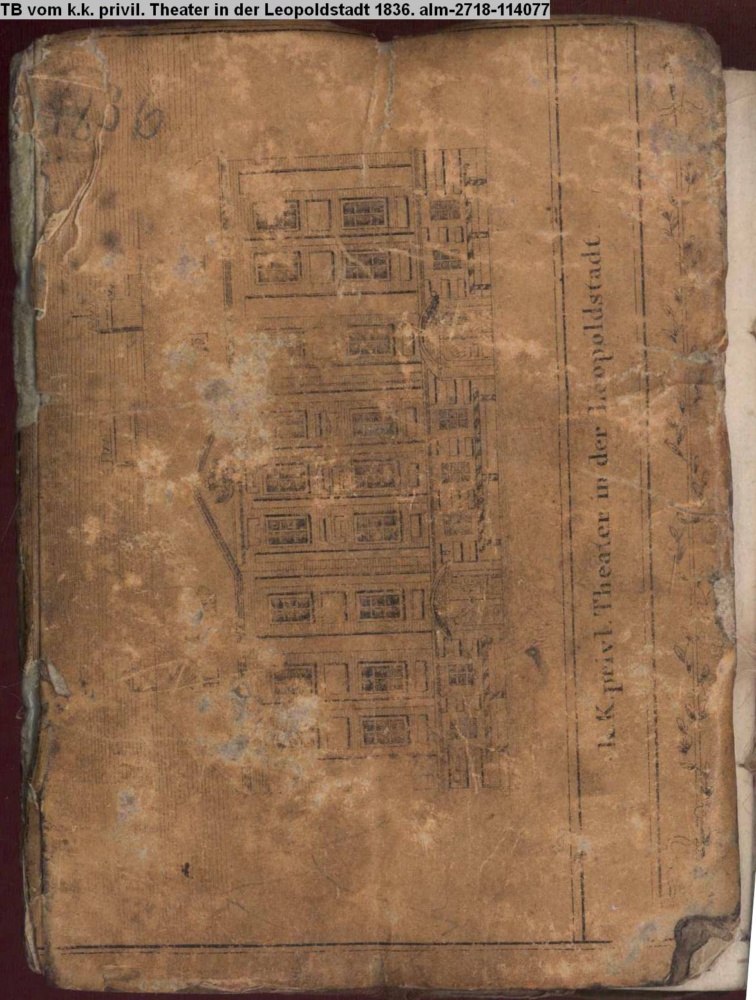 TB vom k.k. privil. Theater in der Leopoldstadt 1836. alm-2718-114077
1836
k. K. privl. Theater in der Leopoldstadt